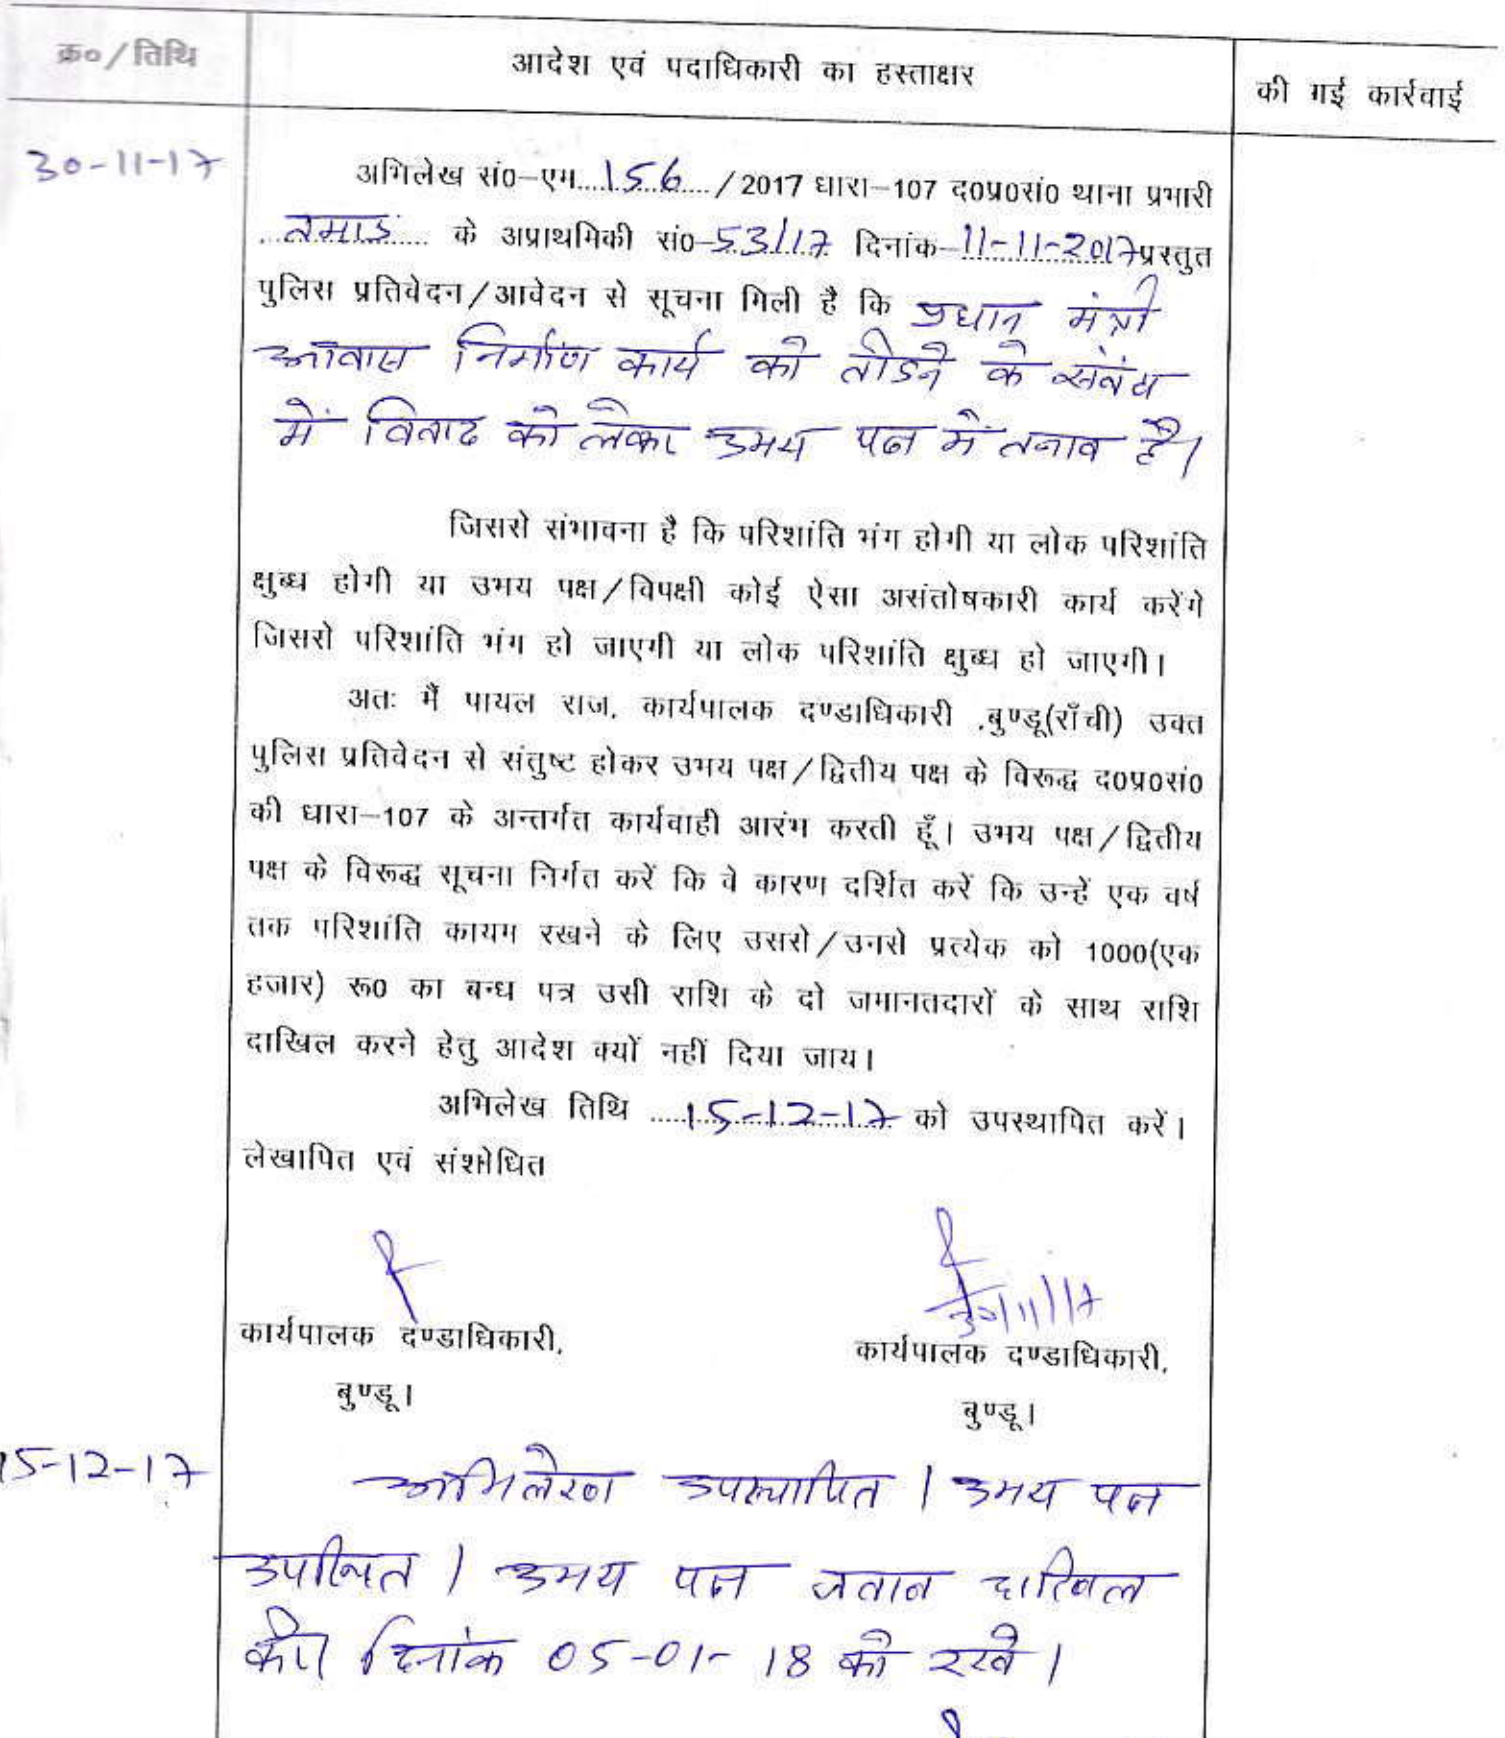 क्र०/तिथि
आदेश एवं पदाधिकारी का हस्ताक्षर
की गई कार्रवाई
30-11-17
अभिलेख सं०-एम....156..../2017 धारा-107 द०प्र०सं० थाना प्रभारी
..तमाड़.... के अप्राथमिकी सं०-53/17 दिनांक-11-11-2017 प्रस्तुत
पुलिस प्रतिवेदन/आवेदन से सूचना मिली है कि प्रधान मंत्री
आवास निर्माण कार्य को तोडने के संबंध
में विवाद को लेकर उभय पक्ष में तनाव है।
जिससे संभावना है कि परिशांति भंग होगी या लोक परिशांति
क्षुब्ध होगी या उभय पक्ष/विपक्षी कोई ऐसा असंतोषकारी कार्य करेंगे
जिससे परिशांति भंग हो जाएगी या लोक परिशांति क्षुब्ध हो जाएगी।
अतः मैं पायल राज, कार्यपालक दण्डाधिकारी ,बुण्डू(राँची) उक्त
पुलिस प्रतिवेदन से संतुष्ट होकर उभय पक्ष/द्वितीय पक्ष के विरूद्ध द०प्र०सं०
की धारा-107 के अन्तर्गत कार्यवाही आरंभ करती हूँ। उभय पक्ष/द्वितीय
पक्ष के विरूद्ध सूचना निर्गत करें कि वे कारण दर्शित करें कि उन्हें एक वर्ष
तक परिशांति कायम रखने के लिए उससे/उनसे प्रत्येक को 1000(एक
हजार) रू० का बन्ध पत्र उसी राशि के दो जमानतदारों के साथ राशि
दाखिल करने हेतु आदेश क्यों नहीं दिया जाय।
अभिलेख तिथि .....15-12-17 को उपस्थापित करें।
लेखापित एवं संशोधित
30/11/17
कार्यपालक दण्डाधिकारी,
बुण्डू।
कार्यपालक दण्डाधिकारी,
बुण्डू।
15-12-17
अभिलेख उपस्थापित। उभय पक्ष
उपस्थित। उभय पक्ष जवाब दाखिल
करें। दिनांक 05-01-18 को रखें।